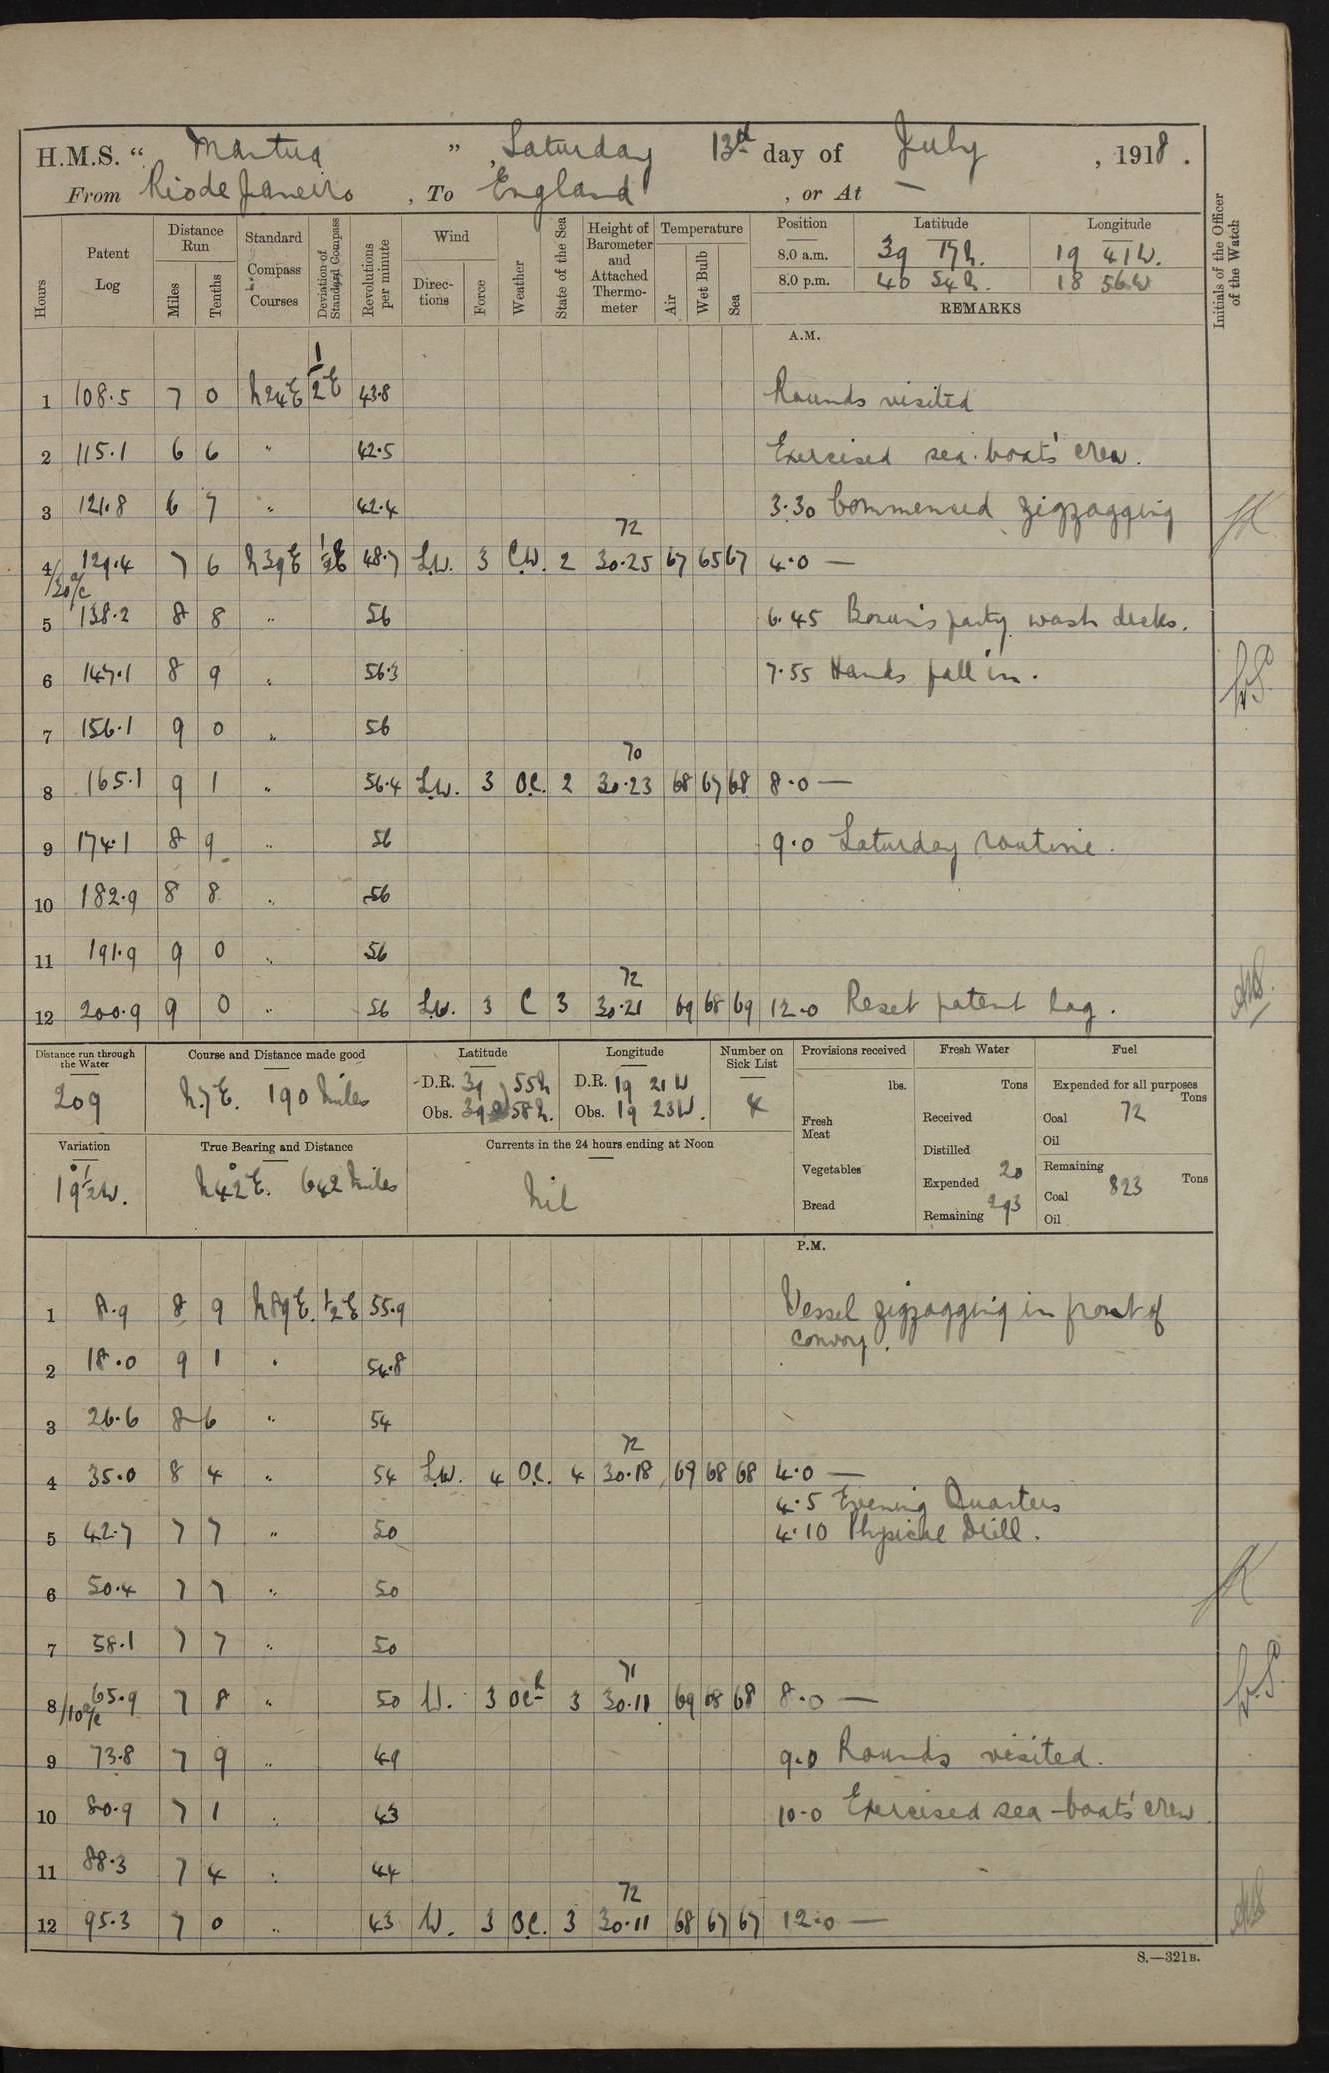 H.M.S. “ Mantua ” , Saturday 13th day of July , 1918 .
From Rio de Janeiro , To England , or At —
Hours Patent Log Distance Run Miles Tenths Standard Compass Courses Deviation of Standard Compass Revolutions per minute Wind Directions Force Weather State of the Sea Height of Barometer and Attached Thermometer Temperature Air Wet Bulb Sea Position Latitude Longitude Initials of the Officer of the Watch
8.0 a.m. 39 17N. 19 41W.
8.0 p.m. 40 54N. 18 56W
REMARKS
A.M.
1 108.5 7 0 N24E 1/2E 43.8 Rounds visited
2 115.1 6 6 " 42.5 Exercised sea-boats' crew.
3 121.8 6 7 " 42.4 3.30 Commenced zigzagging
72
4/30 a/c 129.4 7 6 N39E 1/2E 48.7 S.W. 3 C.W. 2 30.25 67 65 67 4.0 —
5 138.2 8 8 " 56 6.45 Bosun's party wash decks.
6 147.1 8 9 " 56.3 7.55 Hands fall in.
7 156.1 9 0 " 56
70
8 165.1 9 1 " 56.4 S.W. 3 O.C. 2 30.23 68 67 68 8.0 —
9 174.1 8 9 " 56 9.0 Saturday routine.
10 182.9 8 8 " 56
11 191.9 9 0 " 56
72
12 200.9 9 0 " 56 S.W. 3 C 3 30.21 69 68 69 12.0 Reset patent log.
Distance run through the Water Course and Distance made good Latitude Longitude Number on Sick List Provisions received Fresh Water Fuel
209 N.7E. 190 Miles D.R. 39 55N D.R. 19 21W 4 lbs. Tons Expended for all purposes Tons
Obs. 39 58N. Obs. 19 23W. Fresh Meat Received Coal 72
Oil
Variation True Bearing and Distance Currents in the 24 hours ending at Noon Vegetables Distilled Remaining Tons
19 1/2W. N42°E. 642 Miles Nil Expended 20 Coal 823
Bread Remaining 293 Oil
P.M.
1 8.9 8 9 N39E. 1/2E 55.9 Vessel zigzagging in front of
convoy.
2 18.0 9 1 " 54.8
3 26.6 8 6 " 54
72
4 35.0 8 4 " 54 S.W. 4 O.C. 4 30.18 69 68 68 4.0 —
4.5 Evening Quarters
5 42.7 7 7 " 50 4.10 Physical Drill.
6 50.4 7 7 " 50
7 58.1 7 7 " 50
71
8/10 a/c 65.9 7 8 " 50 W. 3 O.C. 3 30.11 69 68 68 8.0 —
9 73.8 7 9 " 49 9.0 Rounds visited.
10 80.9 7 1 " 43 10.0 Exercised sea-boats' crew
11 88.3 7 4 " 44
72
12 95.3 7 0 " 43 W. 3 B.C. 3 30.11 68 67 67 12.0 —
S.—321B.